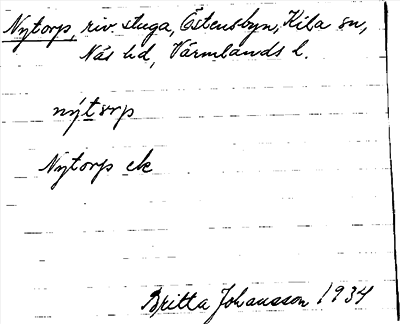 Nytorp, riv. stuga, Östensbyn, Kila sn,
Näs hd, Värmlands l.
nýtorp
Nytorp ek
Britta Johansson 1934